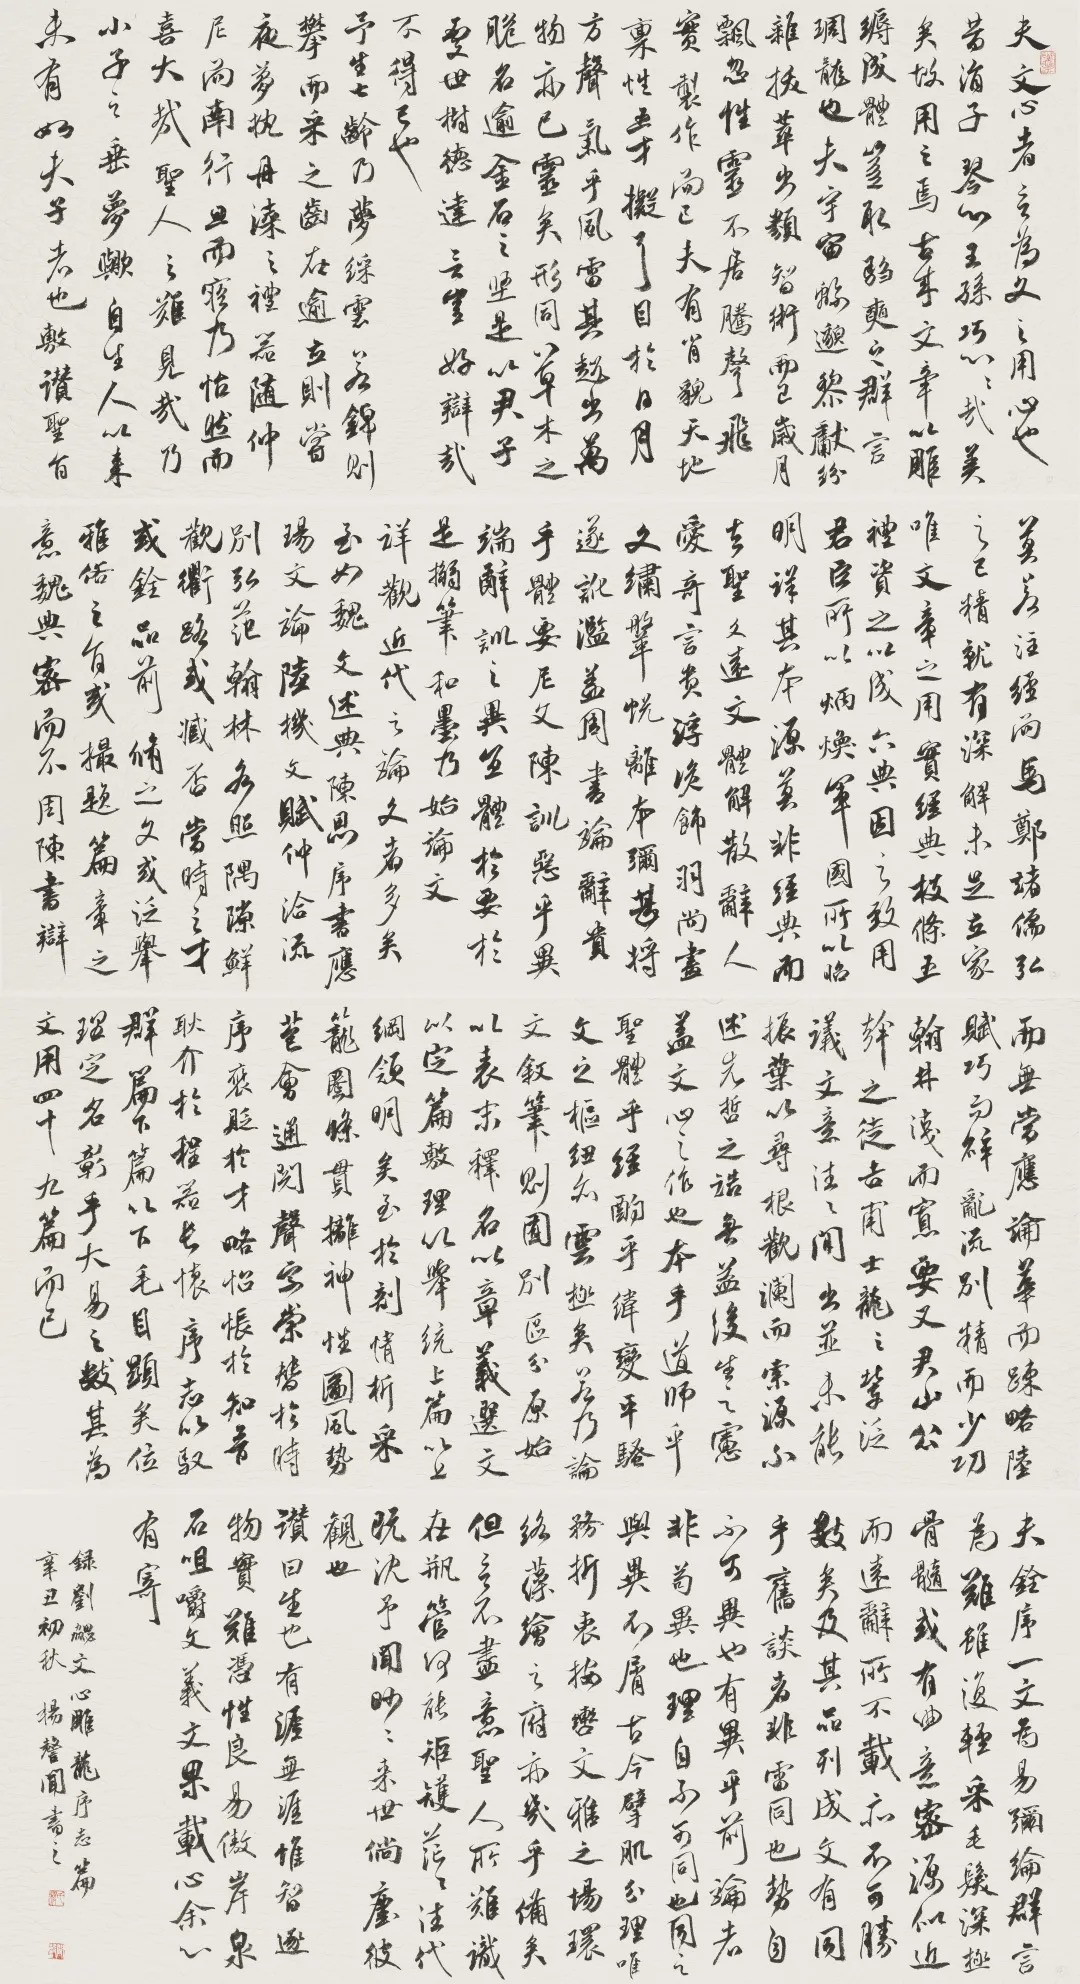 夫文心者言為文之用心也
昔涓子琴心王孫巧心心哉美
矣故用之焉古來文章以雕
縟成體豈取騶奭之群言
琱龍也夫宇宙緜邈黎獻紛
雜拔萃出類智術而已歲月
飄忽性靈不居騰聲飛
實製作而已夫有肖貌天地
稟性五才擬耳目於日月
方聲氣乎風雷其超出萬
物亦已靈矣形同草木之
脆名逾金石之堅是以君子
處世樹德建言豈好辯哉
不得已也
予生七齡乃夢綵雲若錦則
攀而采之齒在逾立則嘗
夜夢執丹漆之禮器隨仲
尼而南行旦而寤乃怡然而
喜大哉聖人之難見哉乃
小子之垂夢歟自生人以來
未有如夫子者也敷讚聖旨
莫若注經而馬鄭諸儒弘
之已精就有深解未足立家
唯文章之用實經典枝條五
禮資之以成六典因之致用
君臣所以炳煥軍國所以昭
明詳其本源莫非經典而
去聖久遠文體解散辭人
愛奇言貴浮詭飾羽尚畫
文繡鞶帨離本彌甚將
遂訛濫蓋周書論辭貴
乎體要尼父陳訓惡乎異
端辭訓之異宜體於要於
是搦筆和墨乃始論文
詳觀近代之論文者多矣
至如魏文述典陳思序書應
瑒文論陸機文賦仲洽流
別弘範翰林各照隅隙鮮
觀衢路或臧否當時之才
或銓品前脩之文或泛舉
雅俗之旨或撮題篇章之
意魏典密而不周陳書辯
而無當應論華而疎略陸
賦巧而碎亂流別精而少功
翰林淺而寡要又君山公
幹之徒吉甫士龍之輩泛
議文意往往間出並未能
振葉以尋根觀瀾而索源不
述先哲之誥無益後生之慮
蓋文心之作也本乎道師乎
聖體乎經酌乎緯變乎騷
文之樞紐亦雲極矣若乃論
文敘筆則囿別區分原始
以表末釋名以章義選文
以定篇敷理以舉統上篇以上
綱領明矣至於剖情析采
籠圈條貫摛神性圖風勢
苞會通閱聲字崇替於時
序褒貶於才略怊悵於知音
耿介於程器長懷序志以馭
群篇下篇以下毛目顯矣位
理定名彰乎大易之數其為
文用四十九篇而已
夫銓序一文為易彌綸群言
為難雖復輕采毛髮深極
骨髓或有曲意密源似近
而遠辭所不載亦不可勝
數矣及其品列成文有同
乎舊談者非雷同也勢自
不可異也有異乎前論者
非苟異也理自不可同也同之
與異不屑古今擘肌分理唯
務折衷按轡文雅之場環
絡藻繪之府亦幾乎備矣
但言不盡意聖人所難識
在瓶管何能矩矱茫茫往代
既沈予聞眇眇來世倘塵彼
觀也
讚曰生也有涯無涯惟智逐
物實難憑性良易傲岸泉
石咀嚼文義文果載心余心
有寄
錄劉勰文心雕龍序志篇
辛丑初秋 楊聲聞書之